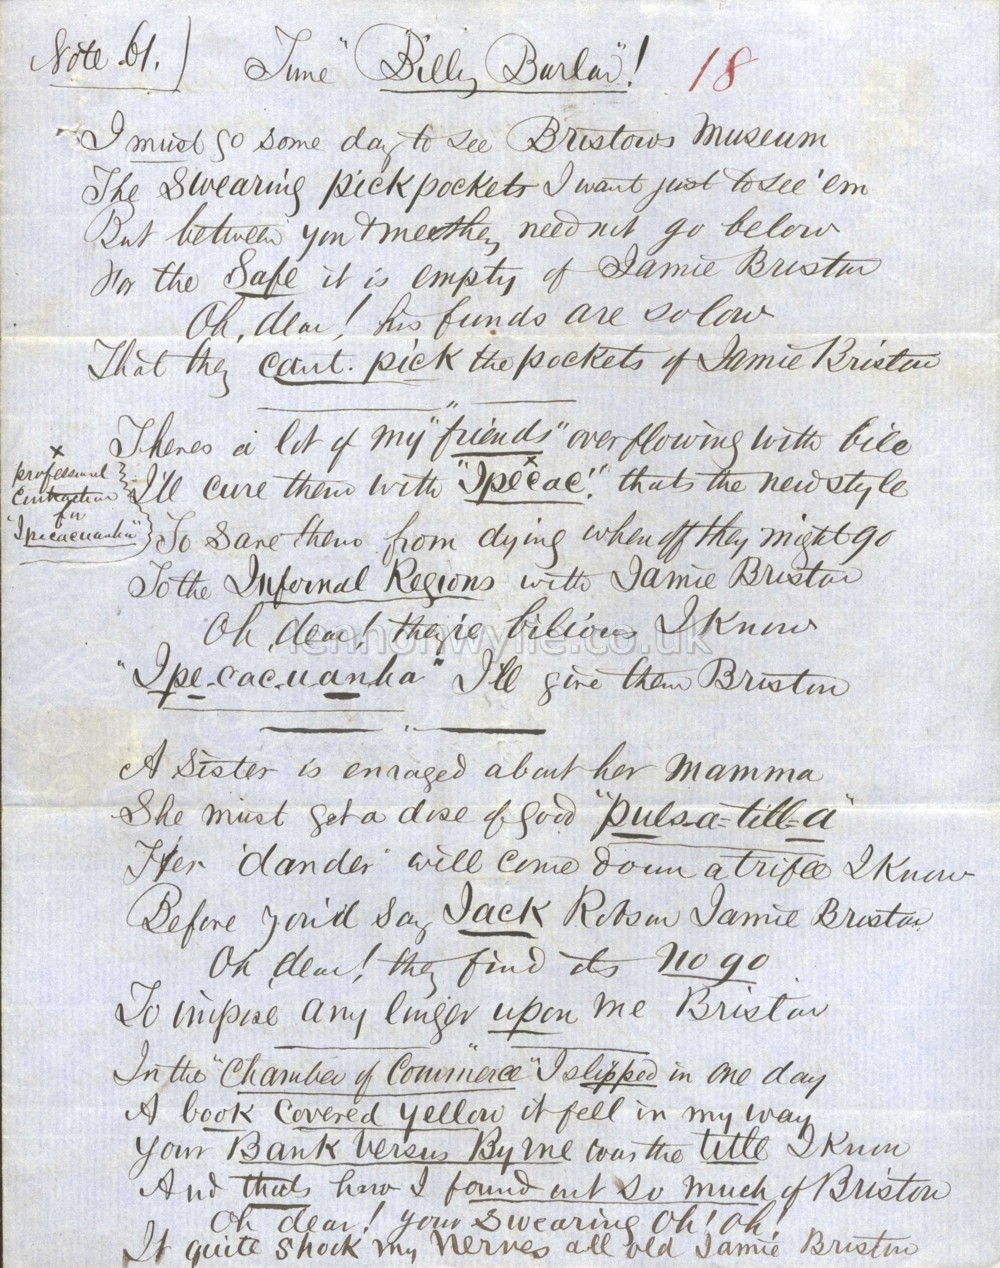 Note 61.) Tune "Billy Barlow"! 18
I must go some day to see Bristows Museum
The Swearing pickpockets I want just to see 'em
But between you & me they need not go below
For the Safe it is empty of Jamie Bristow
Oh, dear! his funds are so low
That they cant pick the pockets of Jamie Bristow
Theres a lot of my "friends" overflowing with bile
I'll cure them with "Ipecac"! thats the new style
x
professional
Contraction
for
"Ipecacuanha"
To Save them from dying when off they might go
To the Infernal Regions with Jamie Bristow
Oh, dear! they're bilious I Know
"Ipe-cac-uanha" I'll give them Bristow
A Sister is enraged about her Mamma
She must get a dose of good "pulsa-till-a"
Her 'dander' will come down a trifle I Know
Before you'd Say Jack Robson Jamie Bristow
Oh dear! they find its no go
To impose any longer upon me Bristow
In the "Chamber of Commerce" I slipped in one day
A book covered yellow it fell in my way
Your Bank Versus Byrne was the title I Know
And thats how I found out so much of Bristow
Oh dear! your Swearing Oh! Oh!
It quite Shock my Nerves all old Jamie Bristow
lennonwylie.co.uk